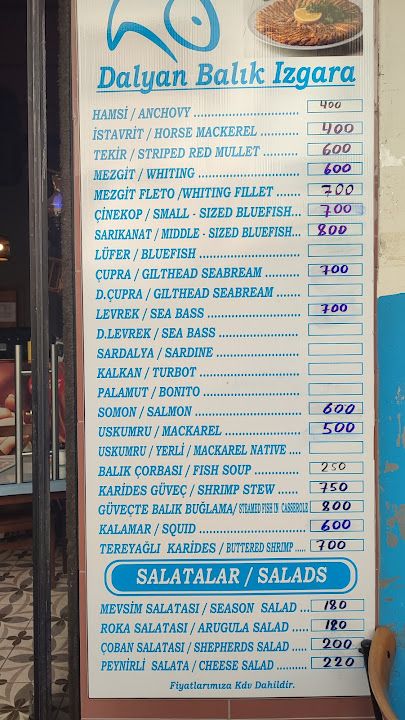 Dalyan Balık Izgara
HAMSİ / ANCHOVY .............................. 400
İSTAVRİT / HORSE MACKEREL ..................... 400
TEKİR / STRIPED RED MULLET .............. 600
MEZGİT / WHITING ............................. 600
MEZGİT FLETO /WHITING FILLET ....... 700
ÇİNEKOP / SMALL - SIZED BLUEFISH... 700
SARIKANAT / MIDDLE - SIZED BLUEFISH... 800
LÜFER / BLUEFISH ..........................
ÇUPRA / GILTHEAD SEABREAM .......... 700
D.ÇUPRA / GILTHEAD SEABREAM .......
LEVREK / SEA BASS .......................... 700
D.LEVREK / SEA BASS .......................
SARDALYA / SARDINE .......................
KALKAN / TURBOT ..........................
PALAMUT / BONITO ..........................
SOMON / SALMON ............................ 600
USKUMRU / MACKAREL ..................... 500
USKUMRU / YERLİ / MACKAREL NATIVE ....
BALIK ÇORBASI / FISH SOUP .............. 250
KARİDES GÜVEÇ / SHRIMP STEW ...... 750
GÜVEÇTE BALIK BUĞLAMA/ STEAMED FISH IN CASSEROLE 800
KALAMAR / SQUID ............................ 600
TEREYAĞLI KARİDES / BUTTERED SHRIMP ..... 700
SALATALAR / SALADS
MEVSİM SALATASI / SEASON SALAD ... 180
ROKA SALATASI / ARUGULA SALAD ..... 180
ÇOBAN SALATASI / SHEPHERDS SALAD ... 200
PEYNİRLİ SALATA / CHEESE SALAD ........ 220
Fiyatlarımıza Kdv Dahildir.